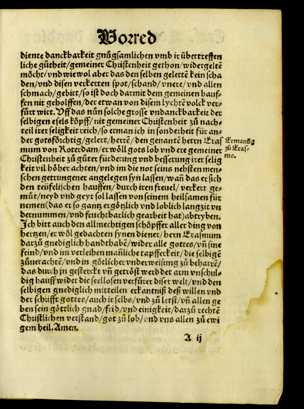 Vorred
diente danckbarkeit gnůgsamlichen vmb ir übertreffen
liche gůtheit/gemeiner Christenheit gethon/widergelte
möcht/vnd wiewol aber das den selben gelerte kein scha
den/vnd disen verkerten spot/schand/vnere/vnd allen
schmach/gebirt/so ist doch darmit dem gemeinen hauf
fen nit geholffen/der etwan von disen lychte volck ver
fürt wirt. Vff das nun solche grosse vndanckbarkeit der
selbigen esels köpff/mit gemeiner Christenheit zů nach
teil irer seligkeit reich/so erman ich in sonderheit für an
der gotsförchtig/gelert/herre/den genante herrn Eras
mum von Roterdam/er wöll gots lob vnd ere gemeiner
Christenheit zů gůter fürderung vnd besserung irer selig
keit vil höher achten/vnd im die not seines nehsten men
schen getrungener angelegen syn lassen/wan das er sich
den teüfelischen hauffen/durch iren freuel/verkert ge
müt/neyd vnd geyz sol lassen von seinem heilsamen für
nemen (das er so gang ergötzlich vnd loblich langzit vn
dernummen/vnd feuchtbarlich gearbeit hat) abtryben.
Ich bitt auch den allmechtigen schöpffer aller ding von
hertzen/er wöl gedachten synen diener/herrn Erasmum
darzů gnediglich handthabē/wider alle gottes/vn̄ sine
feind/vnd im verleihen manliche tapfferkeit/die selbigē
zůuerachtē/vnd in götlicher vnderweisung zů beharrē/
das durch in gesterckt vn̄ getröst werd der arm vnschul
dig hauff wider die seellosen verfürer diser welt/vnd den
selbigen gnediglich mitteilen erkantnuß deß willen vnd
der schrifft gottes/auch ir selbs/vnd zů letst/vn̄ allen ge
ben sein götlich gnad/frid/vnd einigkeit/darzů rechte
Christlichen verstand/got zů lob/vnd vns allen zů ewi
gem heil. Amen.
A ij
Ermanūg
zů Eras-
mo.